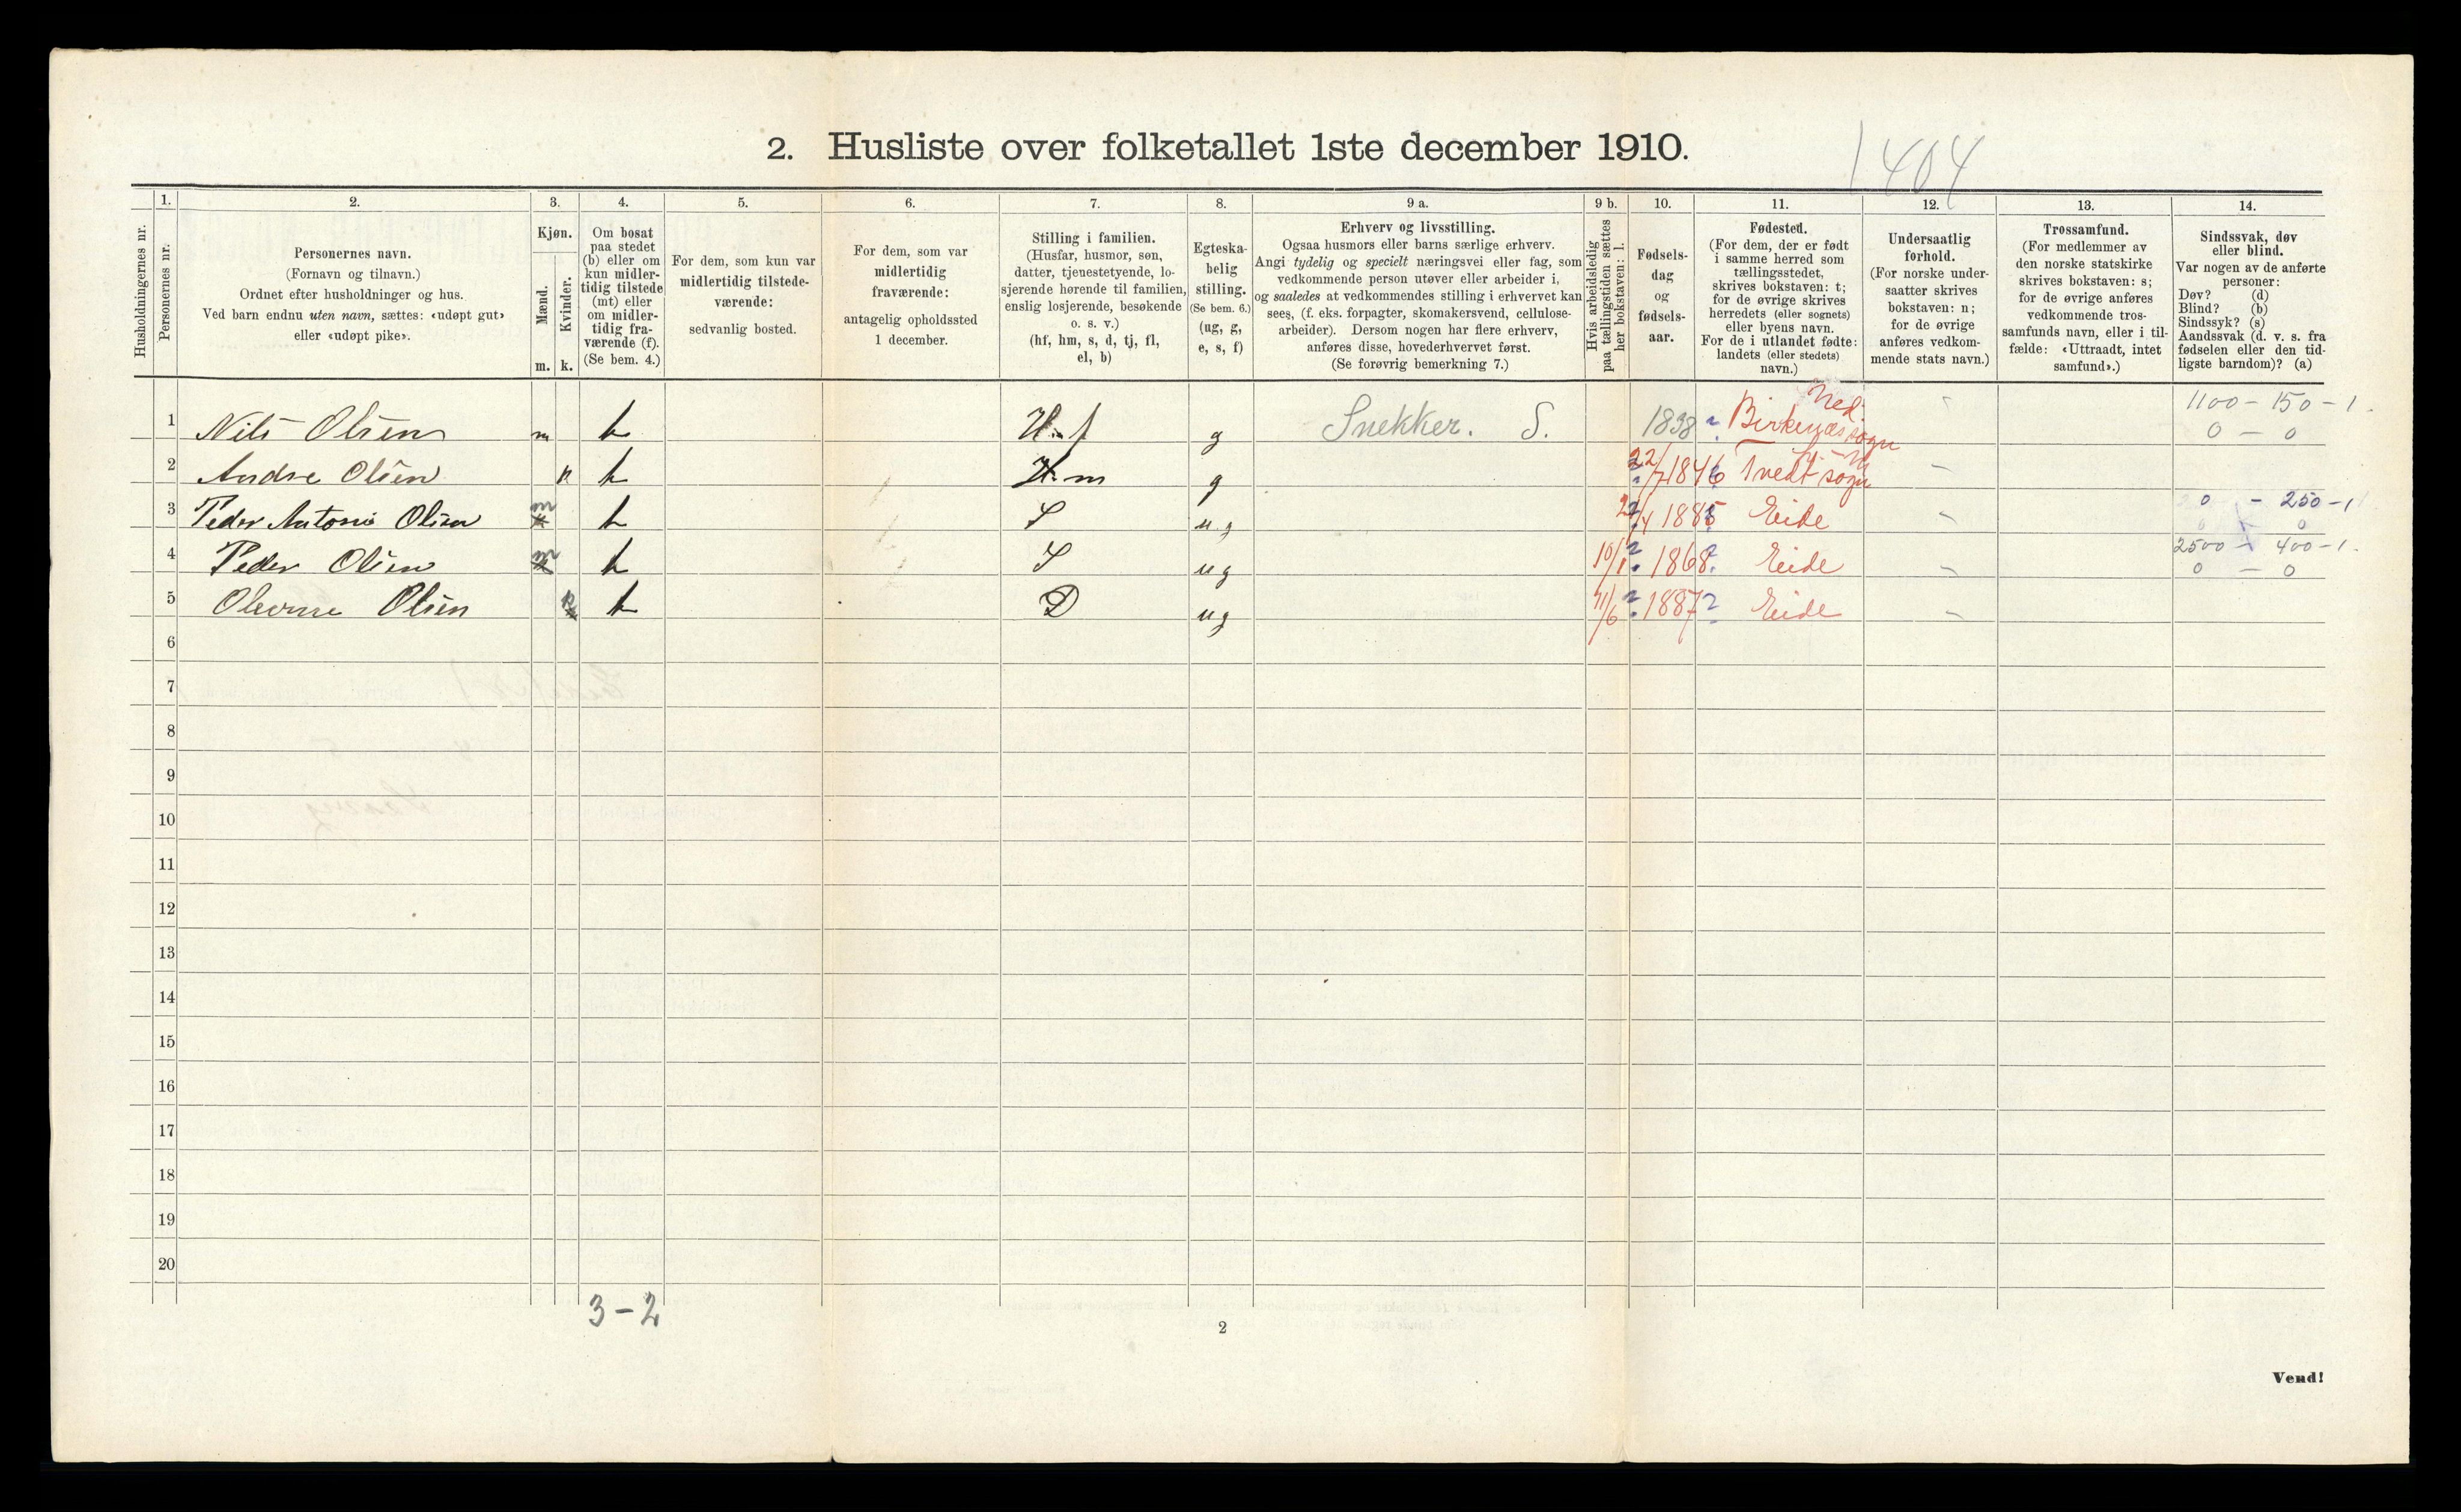 2. Husliste over folketallet 1ste december 1910.
1404
Husholdningernes nr.
1.
Personernes nr.
2.
Personernes navn.
(Fornavn og tilnavn.)
Ordnet efter husholdninger og hus.
Ved barn endnu uten navn, sættes: «udøpt gut»
eller «udøpt pike».
3.
Kjøn.
Mænd.
m.
Kvinder.
k.
4.
Om bosat
paa stedet
(b) eller om
kun midler-
tidig tilstede
(mt) eller
om midler-
tidig fra-
værende (f).
(Se bem. 4.)
5.
For dem, som kun var
midlertidig tilstede-
værende:
sedvanlig bosted.
6.
For dem, som var
midlertidig
fraværende:
antagelig opholdssted
1 december.
7.
Stilling i familien.
(Husfar, husmor, søn,
datter, tjenestetyende, lo-
sjerende hørende til familien,
enslig losjerende, besøkende
o. s. v.)
(hf, hm, s, d, tj, fl,
el, b)
8.
Egteska-
belig
stilling.
(Se bem. 6.)
(ug, g,
e, s, f)
9 a.
Erhverv og livsstilling.
Ogsaa husmors eller barns særlige erhverv.
Angi tydelig og specielt næringsvei eller fag, som
vedkommende person utøver eller arbeider i,
og saaledes at vedkommendes stilling i erhvervet kan
sees, (f. eks. forpagter, skomakersvend, cellulose-
arbeider). Dersom nogen har flere erhverv,
anføres disse, hovederhvervet først.
(Se forøvrig bemerkning 7.)
9 b.
Hvis arbeidsledig
paa tællingstiden sættes
her bokstaven: l.
10.
Fødsels-
dag
og
fødsels-
aar.
11.
Fødested.
(For dem, der er født
i samme herred som
tællingsstedet,
skrives bokstaven: t;
for de øvrige skrives
herredets (eller sognets)
eller byens navn.
For de i utlandet fødte:
landets (eller stedets)
navn.)
12.
Undersaatlig
forhold.
(For norske under-
saatter skrives
bokstaven: n;
for de øvrige
anføres vedkom-
mende stats navn.)
13.
Trossamfund.
(For medlemmer av
den norske statskirke
skrives bokstaven: s;
for de øvrige anføres
vedkommende tros-
samfunds navn, eller i til-
fælde: «Uttraadt, intet
samfund».)
14.
Sindssvak, døv
eller blind.
Var nogen av de anførte
personer:
Døv? (d)
Blind? (b)
Sindssyk? (s)
Aandssvak (d. v. s. fra
fødselen eller den tid-
ligste barndom)? (a)
1 Nils Olsen m b H.f g Snekker. S. 1838 ? Birkenæs sogn Ned. 1100 - 150 - 1.
0 - 0
2 Andre Olsen k b H.m g 22/7 1846 Tvedt sogn
3 Peder Antoni Olsen m b S ug 1885 Eide 0 - 250 - 1
0 0
4 Peder Olsen m b S ug 10/1 ? 1868 ? Eide 2500 - 400 - 1.
0 - 0
5 Olsen k b D ug 11/6 ? 1887 ? Eide
6
7
8
9
10
11
12
13
14
15
16
17
18
19
20
3 - 2
2
Vend!